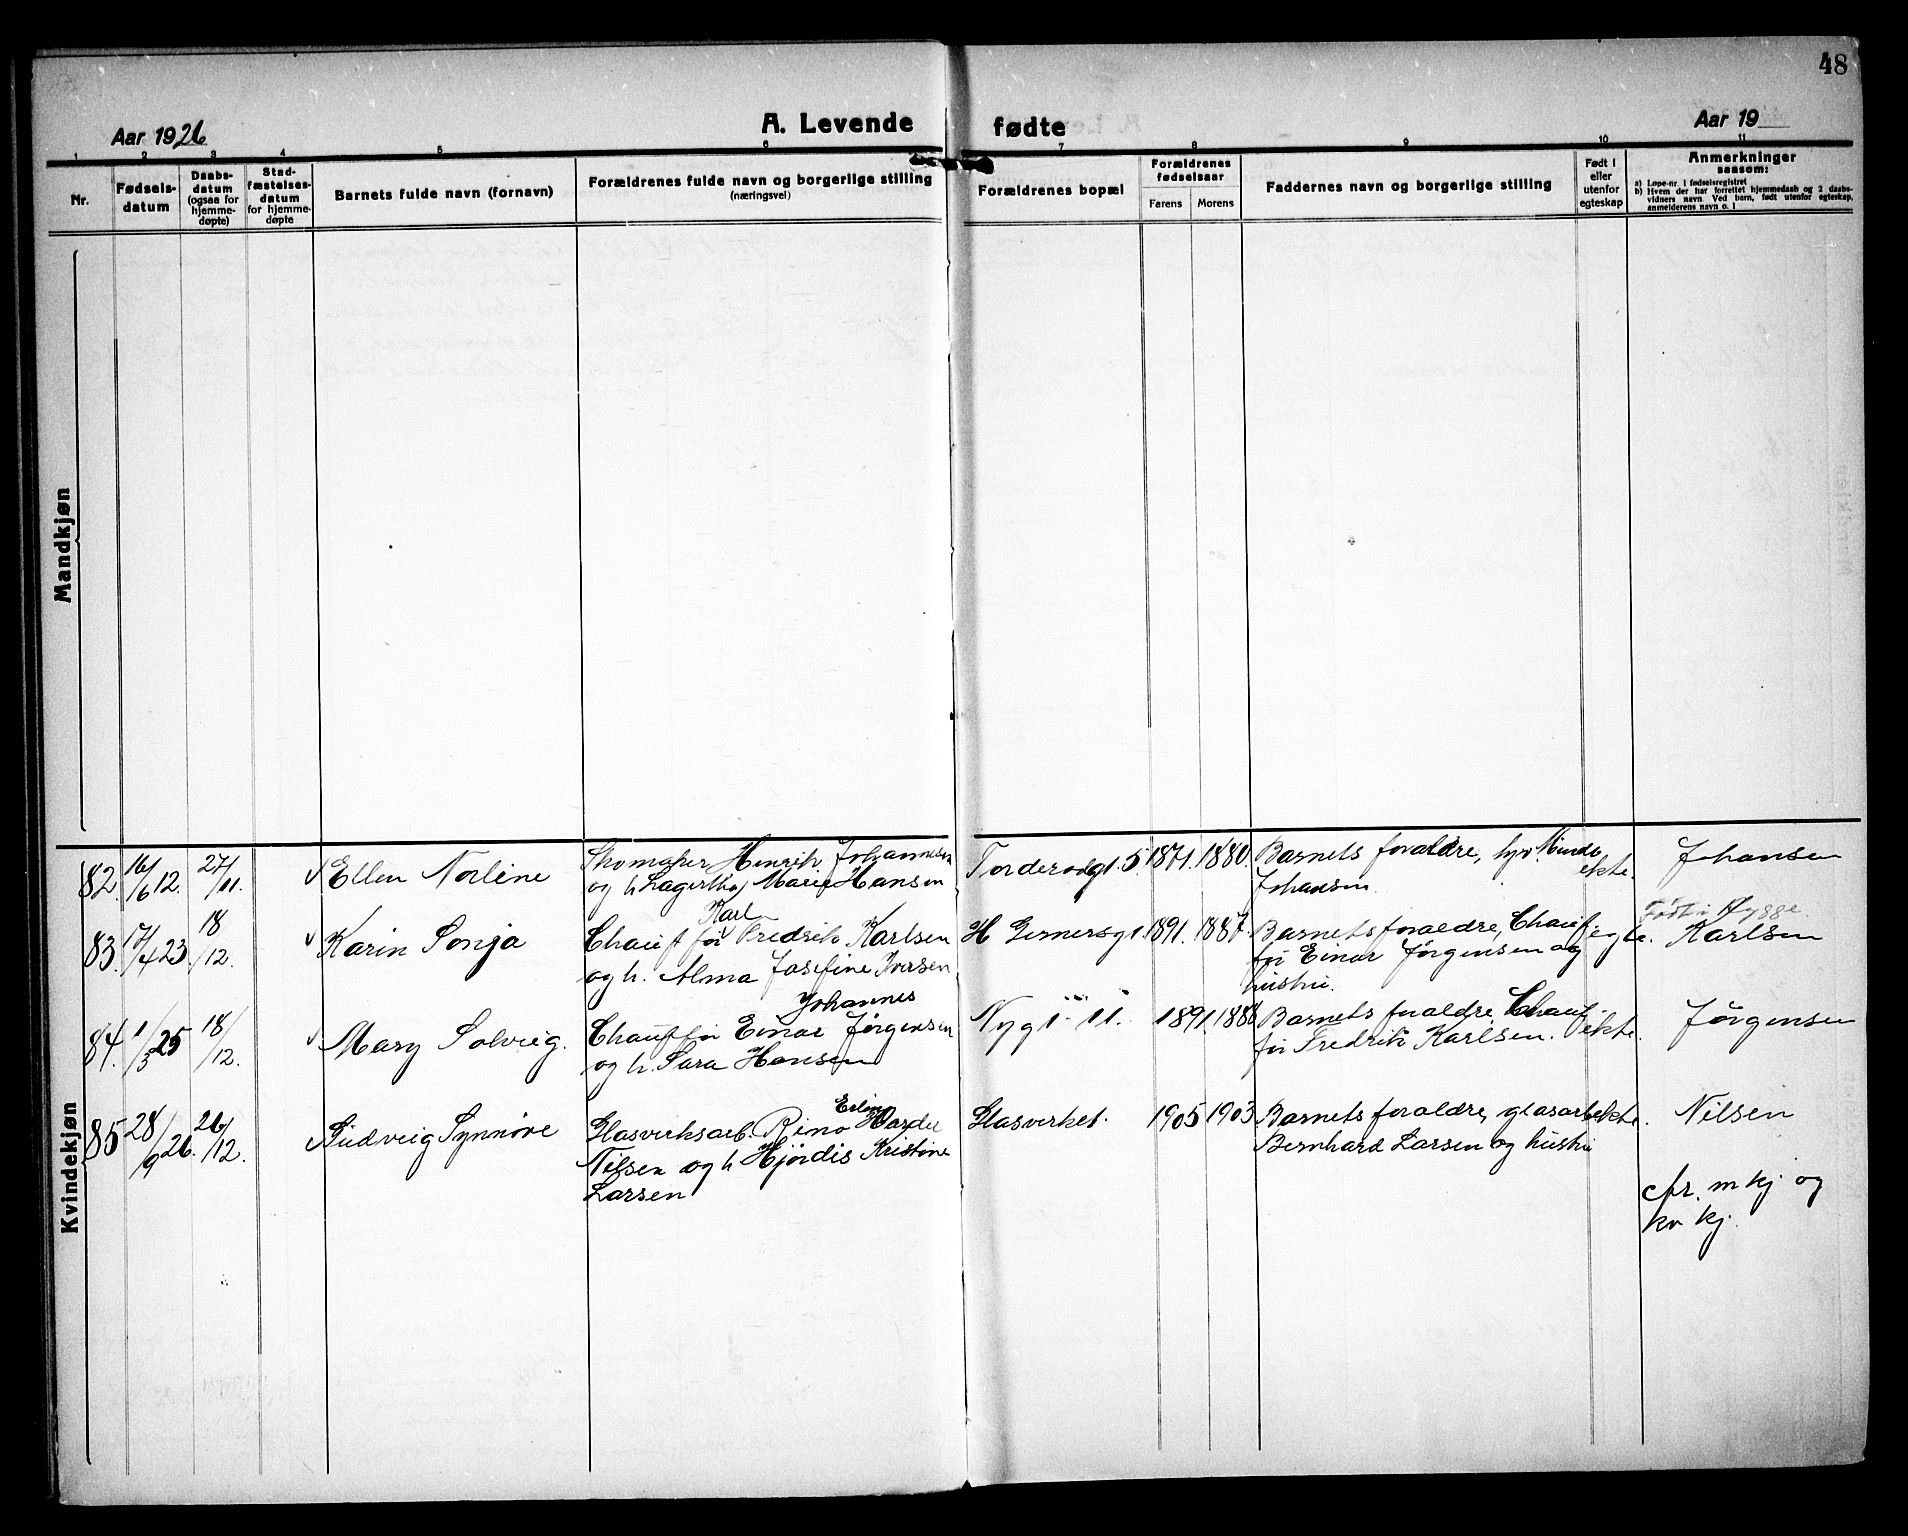 48
Aar 1926
A. Levende fødte
Aar 19
1 2 3 4 5 6 7 8 9 10 11
Nr.
Fødsels-
datum
Daabs-
datum
(ogsaa for
hjemme-
døpte)
Stad-
fæstelses-
datum
for hjemme-
døpte
Barnets fulde navn (fornavn)
Forældrenes fulde navn og borgerlige stilling
(næringsvei)
Forældrenes bopæl
Forældrenes
fødselsaar
Farens Morens
Faddernes navn og borgerlige stilling
Født i
eller
utenfor
egteskap
Anmerkninger
saasom:
a) Løpe-nr. i fødselsregistret
b) Hvem der har forrettet hjemmedaab og 2 daabs-
vidners navn. Ved barn, født utenfor egteskap,
anmelderens navn o. l
Mandkjøn
Kvindekjøn
82. 16/6 12. 27/11. Ellen Norline
Skomaker Henrik Johannesen
og h. Lagertha Marie Hansen
Torderødgt. 5. 1871. 1880.
Barnets foraldre,
Johansen.
ekte.
Johansen
83. 17/4 23. 18/12. Karin Sonja
Karl
Chauffør Fredrik Karlsen
og h. Alma Josefine Iversen
H Gernersgt 1891. 1887.
Barnets foraldre, Chauf-
før Einar Jørgensen og
hustru.
egte.
Født i Rygge.
Karlsen
84. 1/3 25 18/12. Mary Solveig.
Johannes
Chauffør Einar Jørgensen
og h. Sara Hansen
Nyg 1. 11. 1891. 1886
Barnets foraldre, Chauf-
før Fredrik Karlsen.
ekte.
Jørgensen
85 28/9 26. 26/12. Gudveig Synnøve
Erling
Glasverksarb. Rino Harder
Nilsen og h Hjørdis Kristine
Larsen
Glasverket. 1905 1903
Barnets foraldre, glasarb
Bernhard Larsen og hustru
ekte.
Nilsen
cfr. m kj og
kv kj.